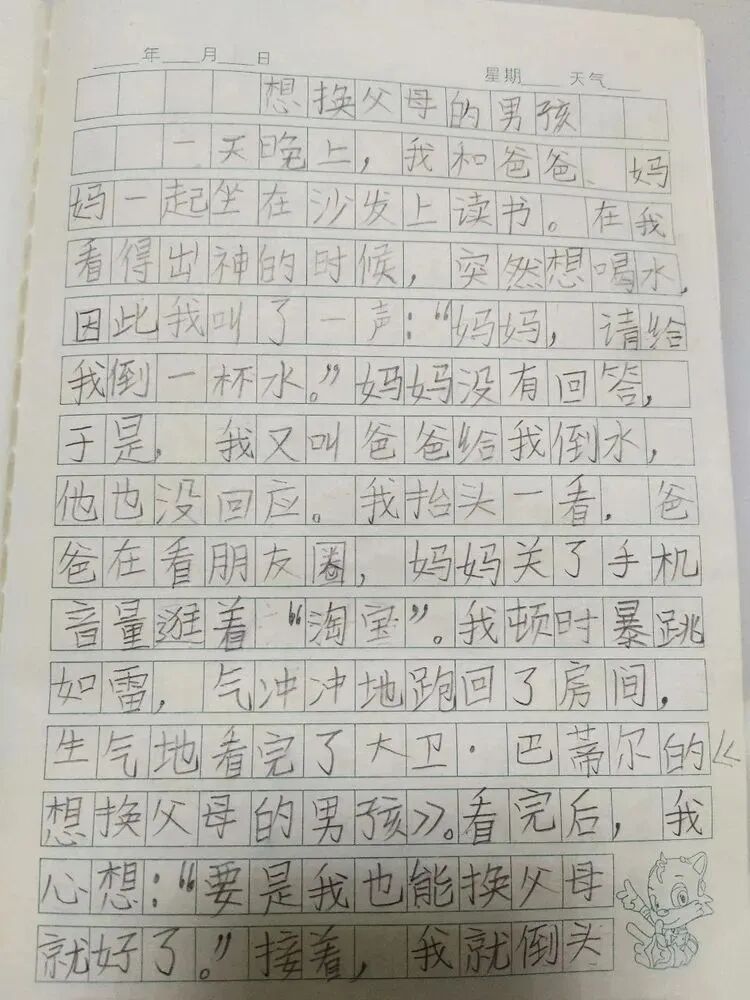 年 月 日 星期 天气
想换父母的男孩
一天晚上，我和爸爸、妈
妈一起坐在沙发上读书。在我
看得出神的时候，突然想喝水，
因此我叫了一声：“妈妈，请给
我倒一杯水。”妈妈没有回答，
于是，我又叫爸爸给我倒水，
他也没回应。我抬头一看，爸
爸在看朋友圈，妈妈关了手机
音量逛着“淘宝”。我顿时暴跳
如雷，气冲冲地跑回了房间，
生气地看完了大卫·巴蒂尔的《
想换父母的男孩》。看完后，我
心想：“要是我也能换父母
就好了。”接着，我就倒头